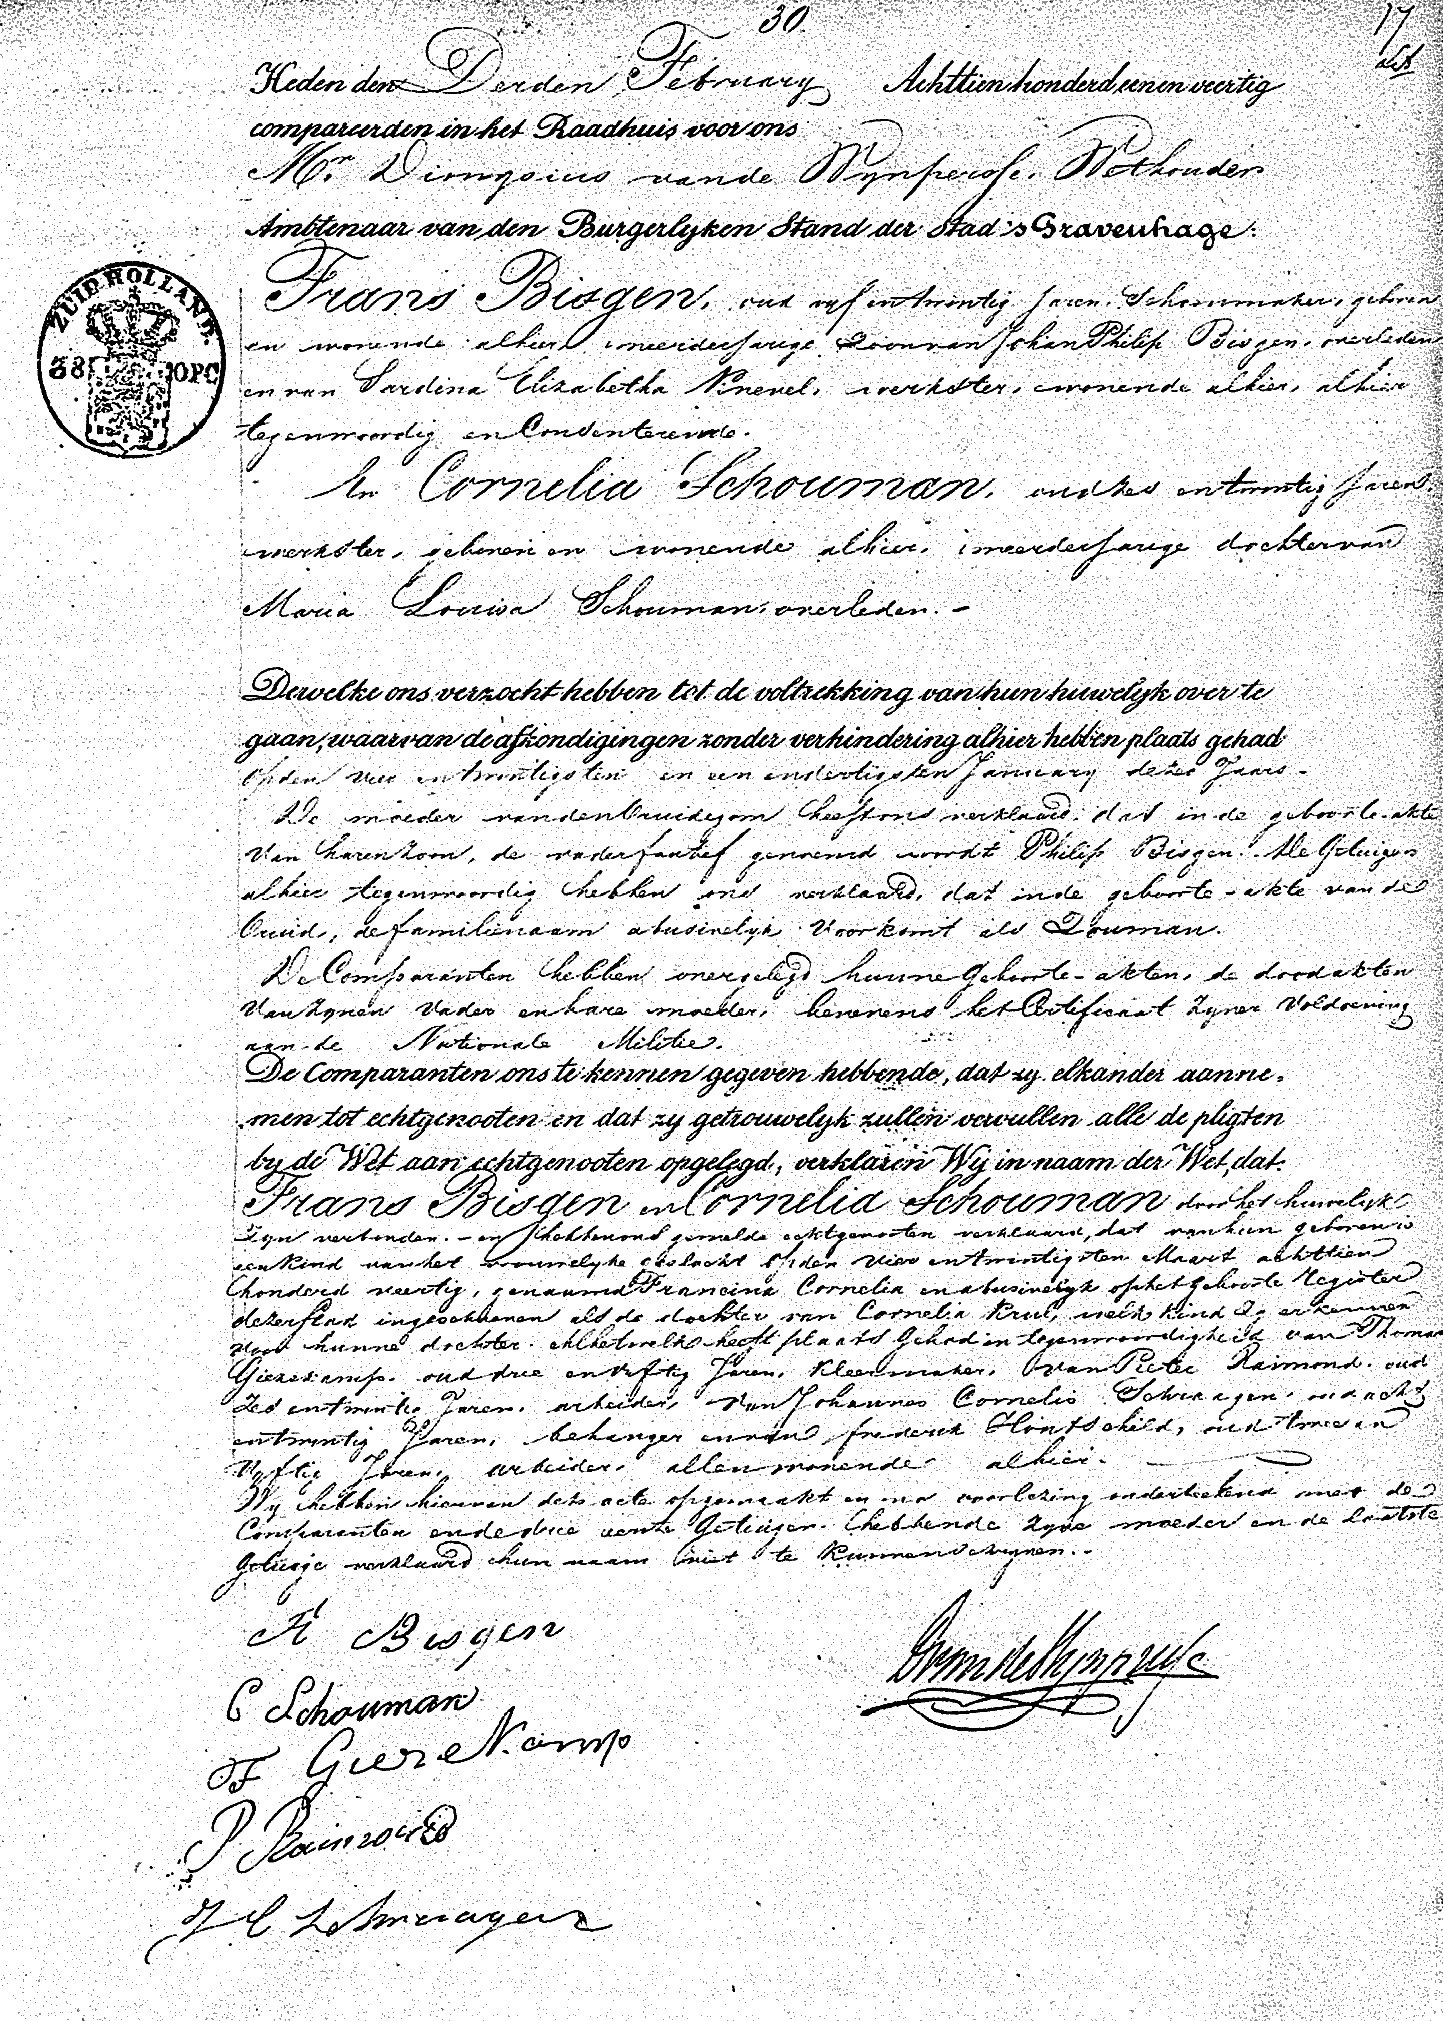 30.
17
Heden den Derden February Achttien honderd een en veertig
compareerden in het Raadhuis voor ons
Mr. Dionysius van de Wynpersse, Wethouder
Ambtenaar van den Burgerlyken Stand der Stad 's Gravenhage:
ZUID HOLLAND.
38 OPC
Frans Bisgen, oud vyf en twintig Jaren, Schoenmaker, geboren
en wonende alhier, meerderjarige Zoon van Johan Philip Bisgen, overleden
en van Sardina Elizabetha Knevel, werkster, wonende alhier, alhier
tegenwoordig en Consenterende.
En Cornelia Schouman, oud zes en twintig Jaren,
werkster, geboren en wonende alhier, meerderjarige dochter van
Maria Louisa Schouman, overleden. -
Dewelke ons verzocht hebben tot de voltrekking van hun huwelyk over te
gaan, waarvan de afkondigingen zonder verhindering alhier hebben plaats gehad
op den vier en twintigsten en een en dertigsten January dezes Jaars -
De moeder van den Bruidegom heeft ons verklaard, dat in de geboorte-akte
van haren Zoon, de vader foutief genoemd wordt Philip Bisgen. De Getuigen
alhier tegenwoordig hebben ons verklaard, dat in de geboorte-akte van de
Bruid, de familienaam abusivelyk voorkomt als Zouman.
De Comparanten hebben overgelegd hunne Geboorte-akten, de doodakten
van zynen vader en hare moeder, benevens het Certificaat zyner voldoening
aan de Nationale Militie.
De Comparanten ons te kennen gegeven hebbende, dat zy elkander aanne-
men tot echtgenooten en dat zy getrouwelyk zullen vervullen alle de pligten
by de Wet aan echtgenooten opgelegd, verklaren Wij in naam der Wet, dat
Frans Bisgen en Cornelia Schouman door het huwelyk
Zyn verbonden. - en hebben ons gemelde echtgenooten verklaard, dat van hun geboren is
een kind van het vrouwelyke geslacht op den vier en twintigsten Maart achttien
honderd veertig, genaamd Francina Cornelia en abusivelyk op het Geboorte register
dezer stad ingeschreven als de dochter van Cornelia Krul, welk kind Zy erkennen
voor hunne dochter. Al hetwelk heeft plaats gehad in tegenwoordigheid van Thomas
Giezekamp, oud drie en vyftig Jaren, kleermaker, van Pieter Raimond, oud
Zes en twintig Jaren, arbeider, van Johannes Cornelis Schraagen, oud acht
en twintig Jaren, behanger en van Frederik Hontscheld, oud twee en
vyftig Jaren, arbeider, allen wonende alhier.
Wy hebben hiervan deze acte opgemaakt en na voorlezing onderteekend met de
Comparanten en de drie eerste Getuigen. hebbende zyne moeder en de laatste
Getuige verklaard hun naam niet te kunnen schryven. -
F Bisgen
DvandeWynpersse
C Schouman
T Giezekamp
P Raimond
J C Schraagen